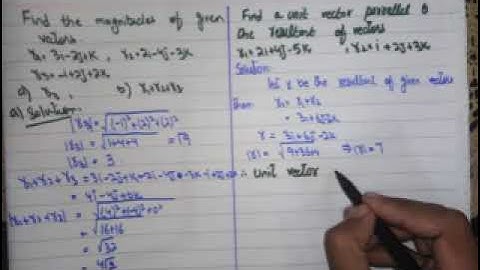 Find the magnitudes of given
vectors
r₁ = 3i-2j+k, r₂ = 2i-4j-3k
r₃ = -i+2j+2k
a) r₃, b) r₁+r₂+r₃
a) Solution:
|r₃| = √(-1)²+(2)²+(2)²
|r₃| = √1+4+4 = √9
|r₃| = 3
r₁+r₂+r₃ = 3i-2j+k+2i-4j-3k-i+2j+2k
= 4i-4j+0k
|r₁+r₂+r₃| = √(4)²+(-4)²+0²
= √16+16
= √32
= 4√2
Find a unit vector parallel to
the resultant of vectors
r₁ = 2i+4j-5k, r₂ = i+2j+3k
Solution:
let r be the resultant of given vectors
then r = r₁+r₂
= 3i+6j-2k
r = 3i+6j-2k
|r| = √9+36+4 ⇒ |r| = 7
∴ unit vector